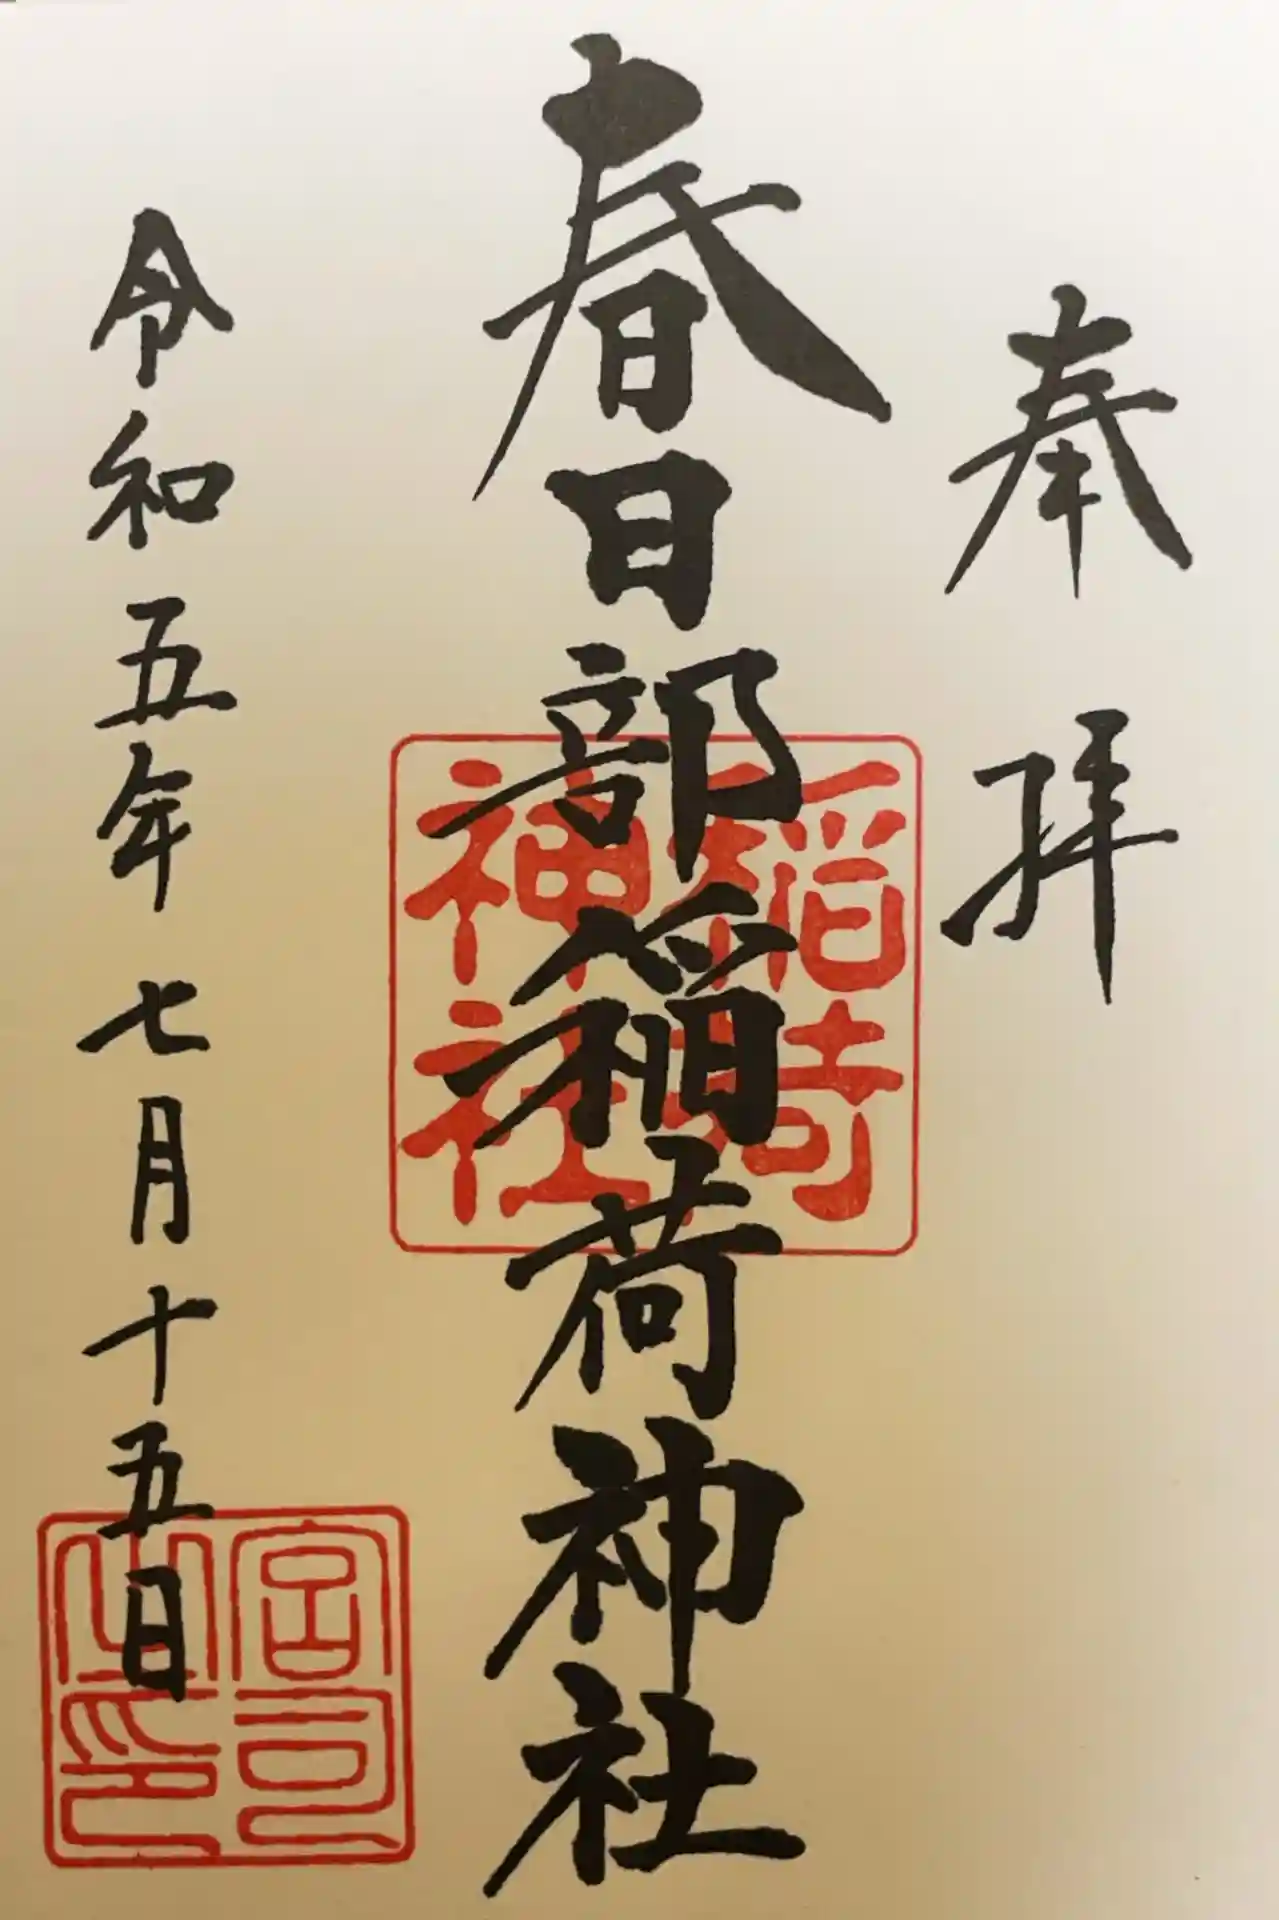 奉拝
春日部稲荷神社
稲荷
神社
令和五年七月十五日
宮司
之印